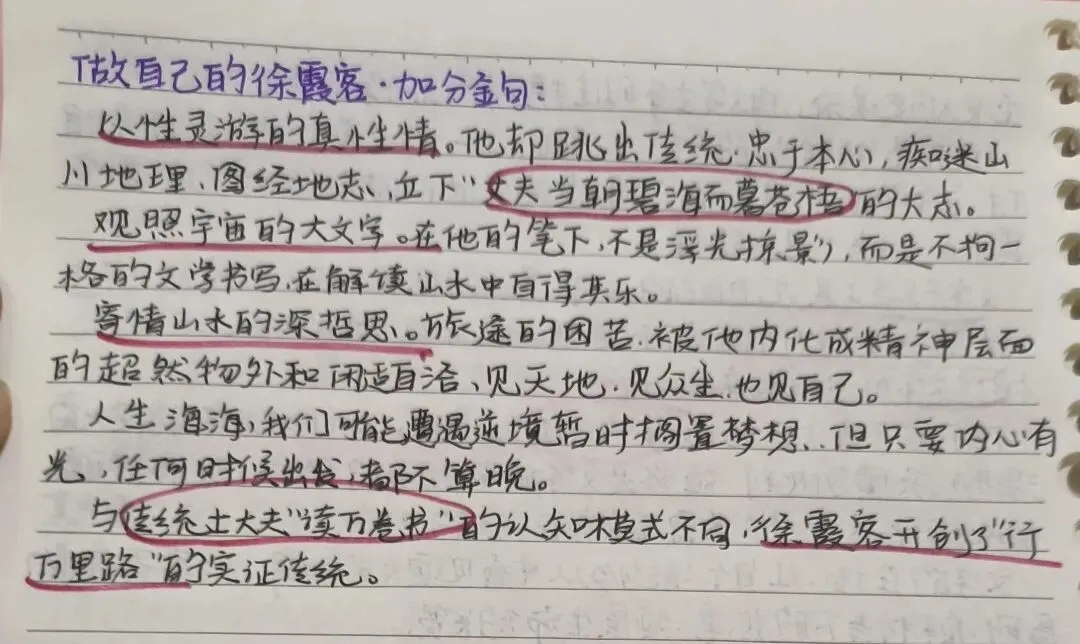 做自己的徐霞客·加分金句:
以性灵游的真性情。他却跳出传统.忠于本心,痴迷山
川地理、图经地志,立下"丈夫当朝碧海而暮苍梧的大志。
观照宇宙的大文字。在他的笔下,不是浮光掠影,而是不拘一
格的文学书写,在解读山水中自得其乐。
寄情山水的深哲思。旅途的困苦.被他内化成精神层面
的超然物外和闲适自洽、见天地.见众生.也见自己。
人生海海,我们可能遭遇逆境暂时搁置梦想、但只要内心有
光,任何时候出发,都不算晚。
与传统士大夫"读万卷书"的认知模式不同,徐霞客开创了"行
万里路"的实证传统。